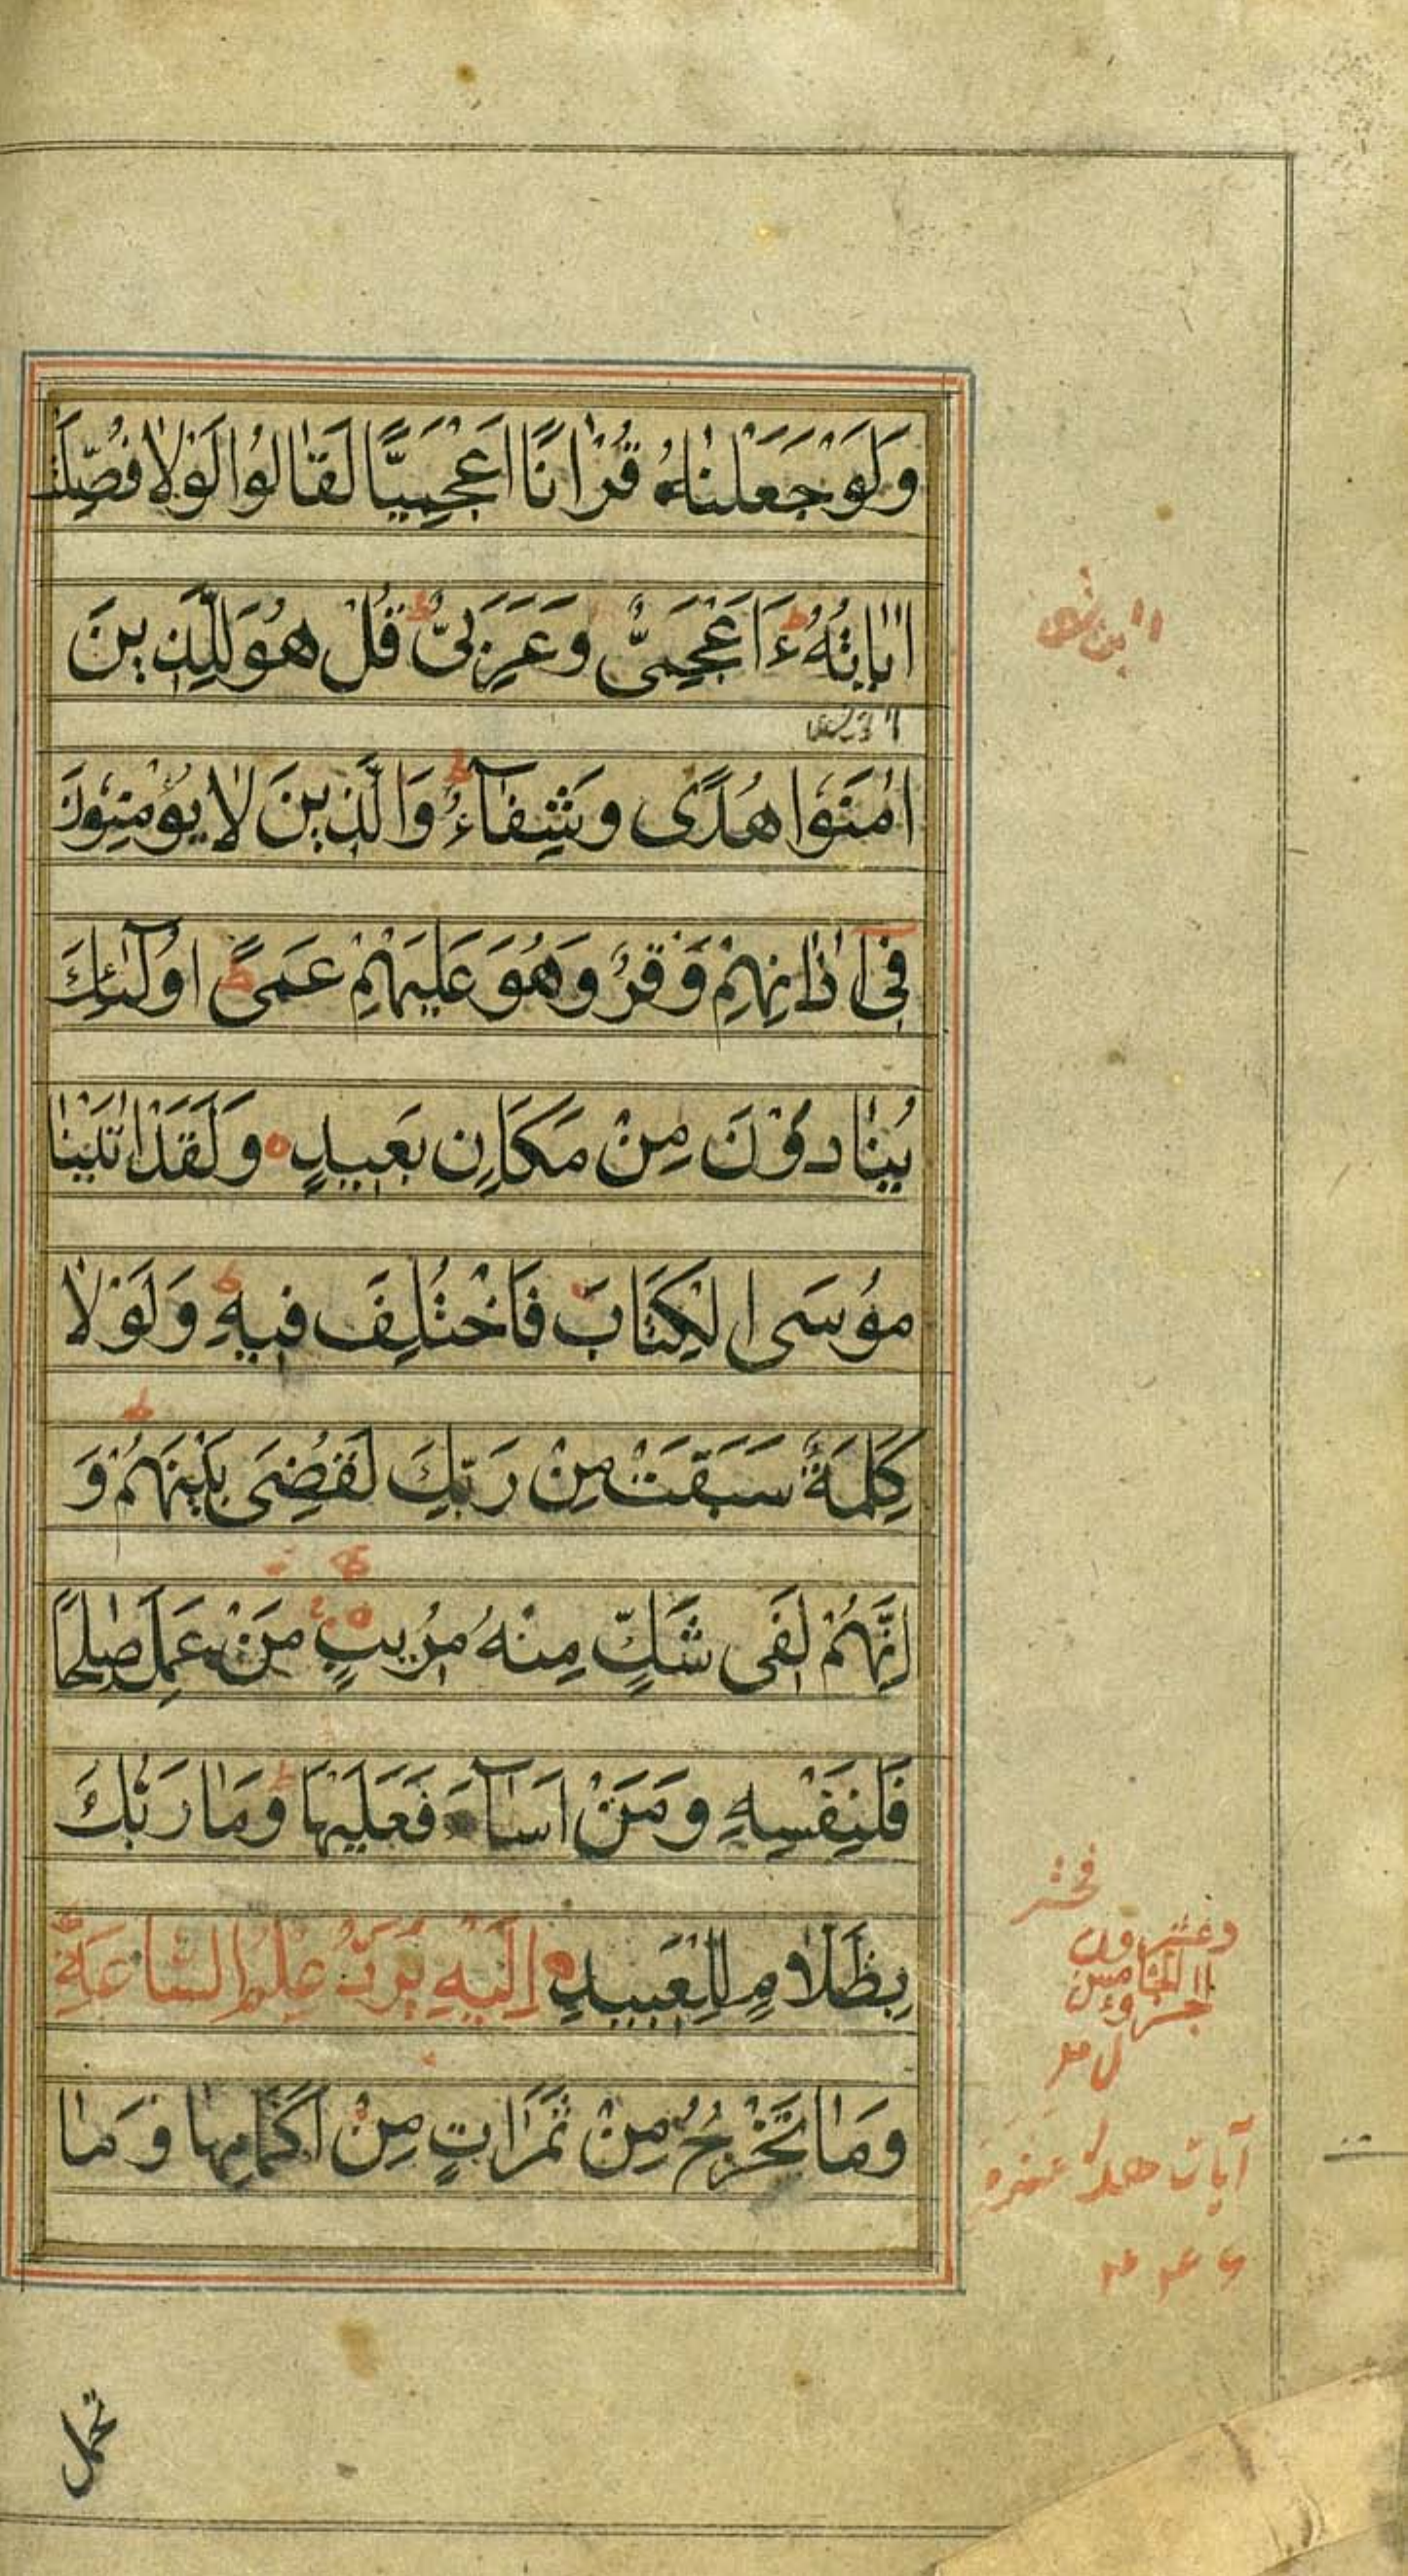 وَلَوْ جَعَلْنٰاهُ قُرْاٰنًا اَعْجَمِيًّا لَقٰالُوا لَوْلٰا فُصِّلَتْ
اٰيٰاتُهُ ءَاَعْجَمِىٌّ وَعَرَبِىٌّ قُلْ هُوَ لِلَّذِينَ
اٰمَنُوا هُدًى وَشِفٰآءٌ وَالَّذِينَ لٰا يُؤْمِنُونَ
فِىٓ اٰذٰانِهِمْ وَقْرٌ وَهُوَ عَلَيْهِمْ عَمًى اُولٰٓئِكَ
يُنٰادَوْنَ مِنْ مَكَانٍ بَعِيدٍ وَلَقَدْ اٰتَيْنٰا
مُوسَى الْكِتَابَ فَاخْتُلِفَ فِيهِ وَلَوْلٰا
كَلِمَةٌ سَبَقَتْ مِنْ رَبِّكَ لَقُضِىَ بَيْنَهُمْ وَ
اِنَّهُمْ لَفِى شَكٍّ مِنْهُ مُرِيبٍ مَنْ عَمِلَ صٰلِحًا
فَلِنَفْسِهِ وَمَنْ اَسٰآءَ فَعَلَيْهٰا وَمٰا رَبُّكَ
بِظَلَّامٍ لِلْعَبِيدِ اِلَيْهِ يُرَدُّ عِلْمُ السَّاعَةِ
وَمٰا تَخْرُجُ مِنْ ثَمَرٰاتٍ مِنْ اَكْمٰامِهٰا وَمٰا
وعشرون
الخامس
جزو
آيات
تحمل